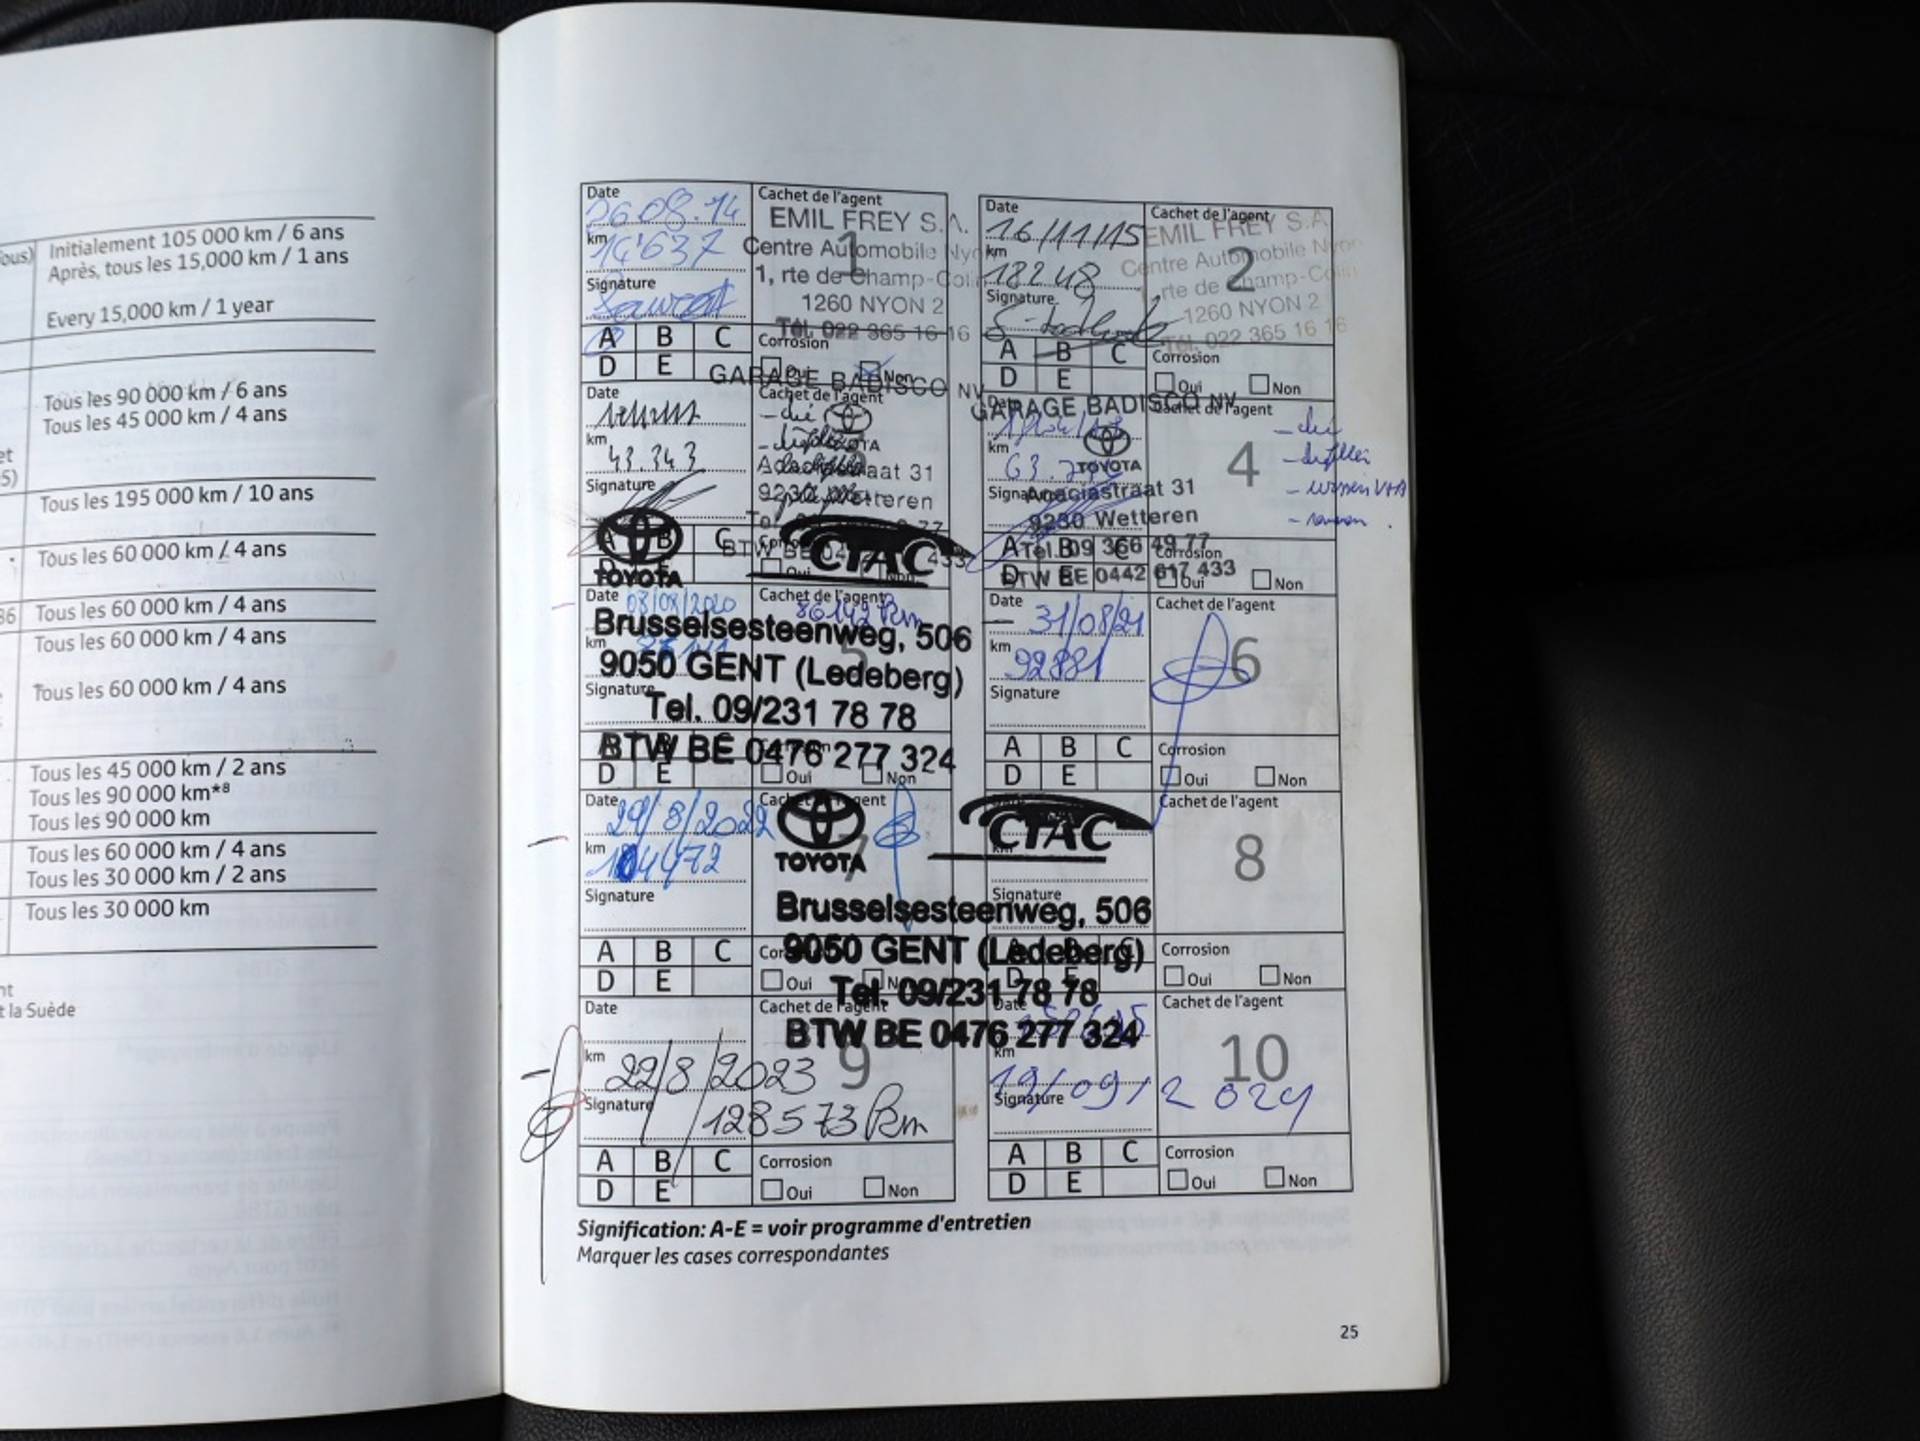 ous) Initialement 105 000 km / 6 ans
Après, tous les 15,000 km / 1 ans
Every 15,000 km / 1 year
Tous les 90 000 km / 6 ans
Tous les 45 000 km / 4 ans
et
5)
Tous les 195 000 km / 10 ans
Tous les 60 000 km / 4 ans
86 Tous les 60 000 km / 4 ans
Tous les 60 000 km / 4 ans
Tous les 60 000 km / 4 ans
Tous les 45 000 km / 2 ans
Tous les 90 000 km*⁸
Tous les 90 000 km
Tous les 60 000 km / 4 ans
Tous les 30 000 km / 2 ans
Tous les 30 000 km
nt
t la Suède
Date
26.08.14
km
14'637
Signature
Cachet de l'agent
1
EMIL FREY S.A.
Centre Automobile Nyon
1, rte de Champ-Colin
1260 NYON 2
Tél. 022 365 16 16
A B C
D E
Corrosion
Oui Non
Date
16/11/15
km
18248
Signature
Cachet de l'agent
2
EMIL FREY S.A.
Centre Automobile Nyon
rte de Champ-Colin
1260 NYON 2
Tél. 022 365 16 16
A B C
D E
Corrosion
Oui Non
GARAGE BADISCO NV
Date
km
43.343
Signature
Cachet de l'agent
TOYOTA
Acaciastraat 31
9230 Wetteren
BTW BE 04 433
A B C
Oui Non
GARAGE BADISCO NV
Date
km
63.
Signature
Cachet de l'agent
4
TOYOTA
Acaciastraat 31
9230 Wetteren
Tel. 09 366 49 77
BTW BE 0442 617 433
A B C
D E
Corrosion
Oui Non
TOYOTA CTAC
Date
08/08/2020
km
Signature
Cachet de l'agent
86142 km
5
Brusselsesteenweg, 506
9050 GENT (Ledeberg)
Tel. 09/231 78 78
BTW BE 0476 277 324
D E
Oui Non
Date
31/08/21
km
92881
Signature
Cachet de l'agent
6
A B C
D E
Corrosion
Oui Non
Date
29/8/2022
km
104472
Signature
Cachet de l'agent
7
A B C
D E
Oui Non
TOYOTA CTAC
Brusselsesteenweg, 506
9050 GENT (Ledeberg)
Tel. 09/231 78 78
BTW BE 0476 277 324
km
Signature
Cachet de l'agent
8
Corrosion
Oui Non
Date
km
22/8/2023
Signature
128573 km
Cachet de l'agent
9
A B C
D E
Corrosion
Oui Non
Date
km
19/09/2024
Signature
Cachet de l'agent
10
A B C
D E
Corrosion
Oui Non
Signification: A-E = voir programme d'entretien
Marquer les cases correspondantes
25